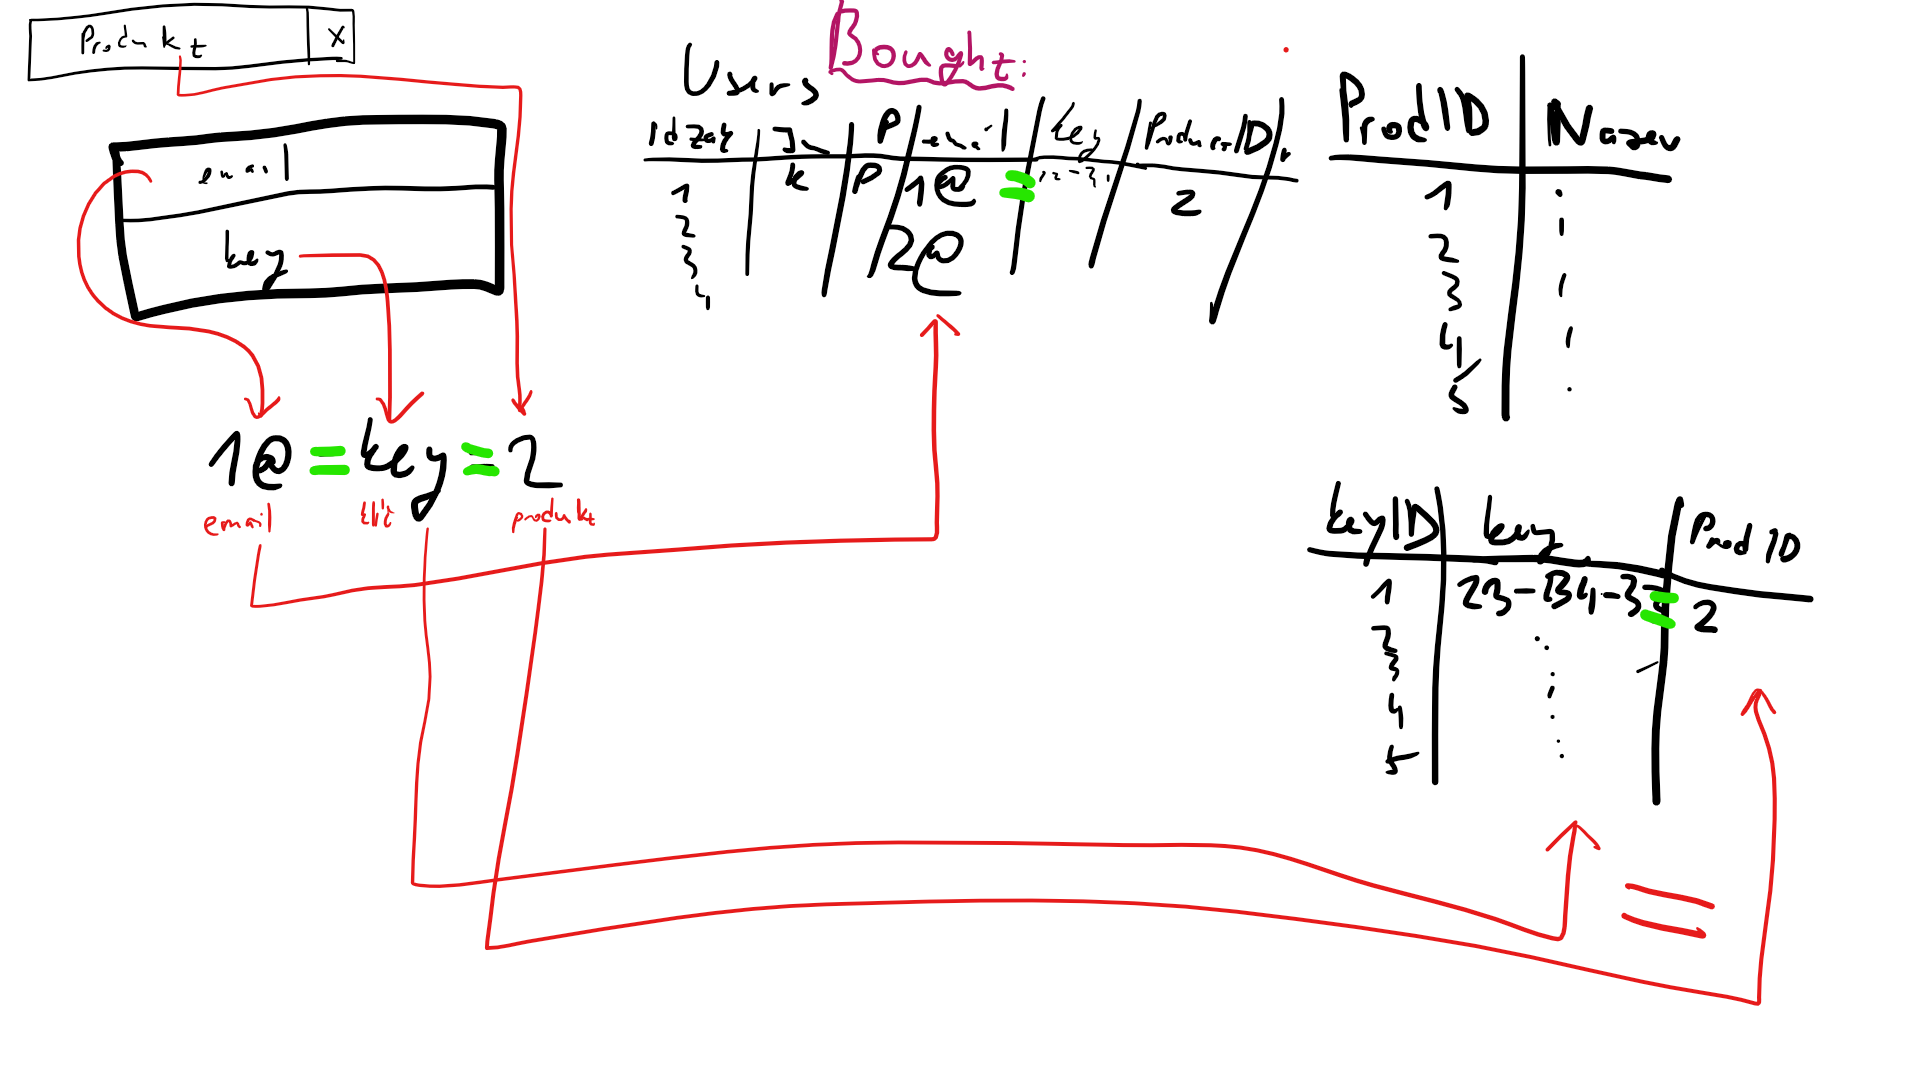 Produkt X
email
key
1@ = key = 2
email klíč produkt
Bought:
Users
Id zak J P email key Product ID
1 k P 1@ = 2
2 2@
3
4
Prod ID Nazev
1
2
3
4
5
key ID key Prod ID
1 23-B4-3 = 2
2
3
4
5
=